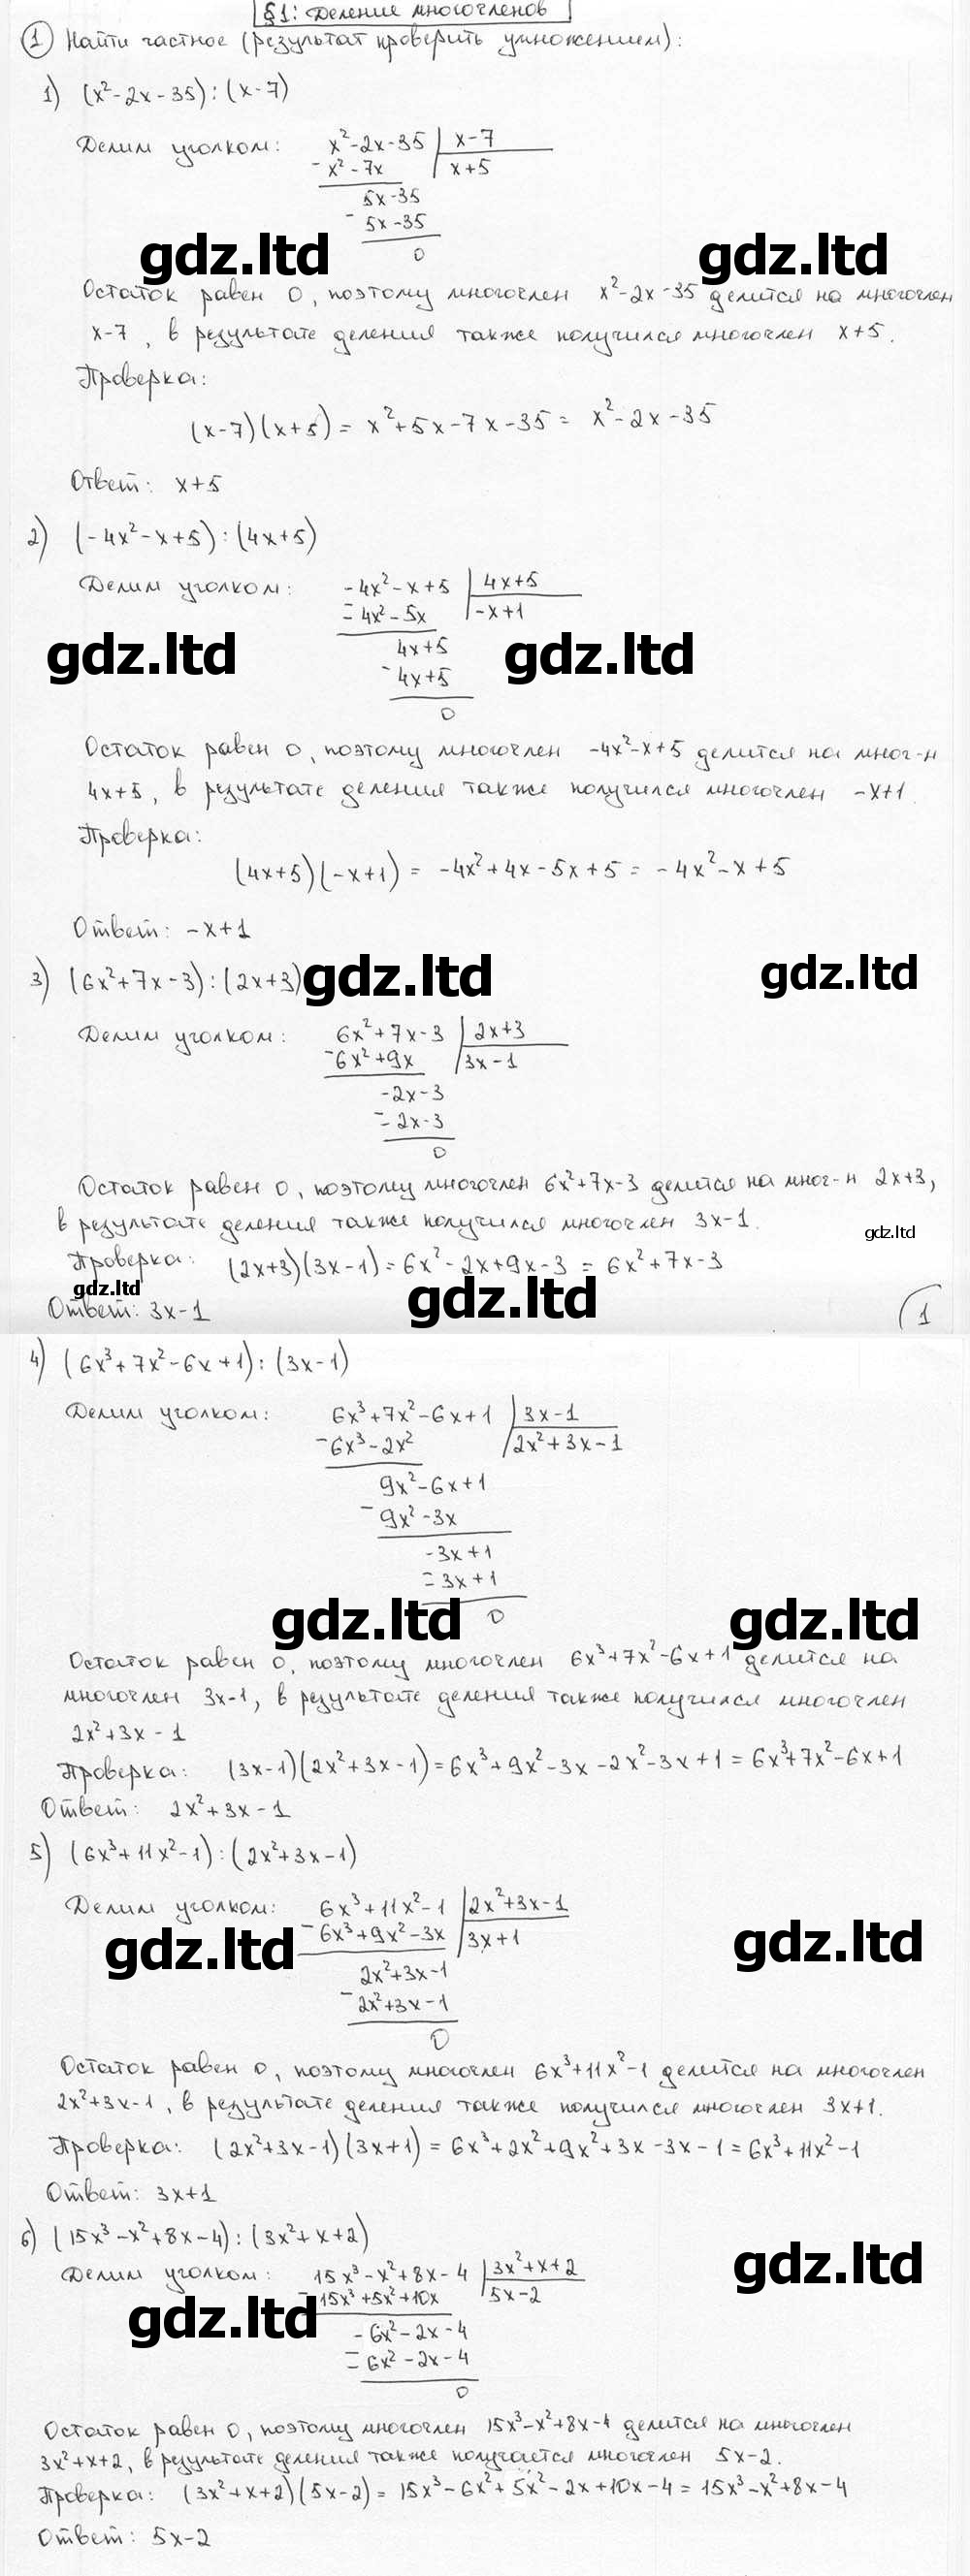 §1: Деление многочленов
1 Найти частное (результат проверить умножением):
1) (x²-2x-35):(x-7)
Делим уголком: x²-2x-35 | x-7
- x²-7x x+5
5x-35
- 5x-35
gdz.ltd gdz.ltd
0
Остаток равен 0, поэтому многочлен x²-2x-35 делится на многочлен
x-7, в результате деления также получился многочлен x+5.
Проверка:
(x-7)(x+5) = x²+5x-7x-35 = x²-2x-35
Ответ: x+5
2) (-4x²-x+5):(4x+5)
Делим уголком: -4x²-x+5 | 4x+5
- -4x²-5x -x+1
4x+5
gdz.ltd gdz.ltd
- 4x+5
0
Остаток равен 0, поэтому многочлен -4x²-x+5 делится на мног-н
4x+5, в результате деления также получился многочлен -x+1.
Проверка:
(4x+5)(-x+1) = -4x²+4x-5x+5 = -4x²-x+5
Ответ: -x+1
3) (6x²+7x-3):(2x+3) gdz.ltd gdz.ltd
Делим уголком: 6x²+7x-3 | 2x+3
- 6x²+9x 3x-1
-2x-3
- -2x-3
0
Остаток равен 0, поэтому многочлен 6x²+7x-3 делится на мног-н 2x+3,
в результате деления также получился многочлен 3x-1.
gdz.ltd
Проверка: (2x+3)(3x-1) = 6x²-2x+9x-3 = 6x²+7x-3
gdz.ltd gdz.ltd
Ответ: 3x-1
1
4) (6x³+7x²-6x+1):(3x-1)
Делим уголком: 6x³+7x²-6x+1 | 3x-1
- 6x³-2x² 2x²+3x-1
9x²-6x+1
- 9x²-3x
-3x+1
- -3x+1
0
gdz.ltd gdz.ltd
Остаток равен 0, поэтому многочлен 6x³+7x²-6x+1 делится на
многочлен 3x-1, в результате деления также получился многочлен
2x²+3x-1
Проверка: (3x-1)(2x²+3x-1) = 6x³+9x²-3x-2x²-3x+1 = 6x³+7x²-6x+1
Ответ: 2x²+3x-1
5) (6x³+11x²-1):(2x²+3x-1)
Делим уголком: 6x³+11x²-1 | 2x²+3x-1
- 6x³+9x²-3x 3x+1
gdz.ltd gdz.ltd
2x²+3x-1
- 2x²+3x-1
0
Остаток равен 0, поэтому многочлен 6x³+11x²-1 делится на многочлен
2x²+3x-1, в результате деления также получился многочлен 3x+1.
Проверка: (2x²+3x-1)(3x+1) = 6x³+2x²+9x²+3x-3x-1 = 6x³+11x²-1
Ответ: 3x+1
6) (15x³-x²+8x-4):(3x²+x+2)
gdz.ltd
Делим уголком: 15x³-x²+8x-4 | 3x²+x+2
- 15x³+5x²+10x 5x-2
gdz.ltd
-6x²-2x-4
- -6x²-2x-4
0
Остаток равен 0, поэтому многочлен 15x³-x²+8x-4 делится на многочлен
3x²+x+2, в результате деления также получается многочлен 5x-2.
Проверка: (3x²+x+2)(5x-2) = 15x³-6x²+5x²-2x+10x-4 = 15x³-x²+8x-4
Ответ: 5x-2